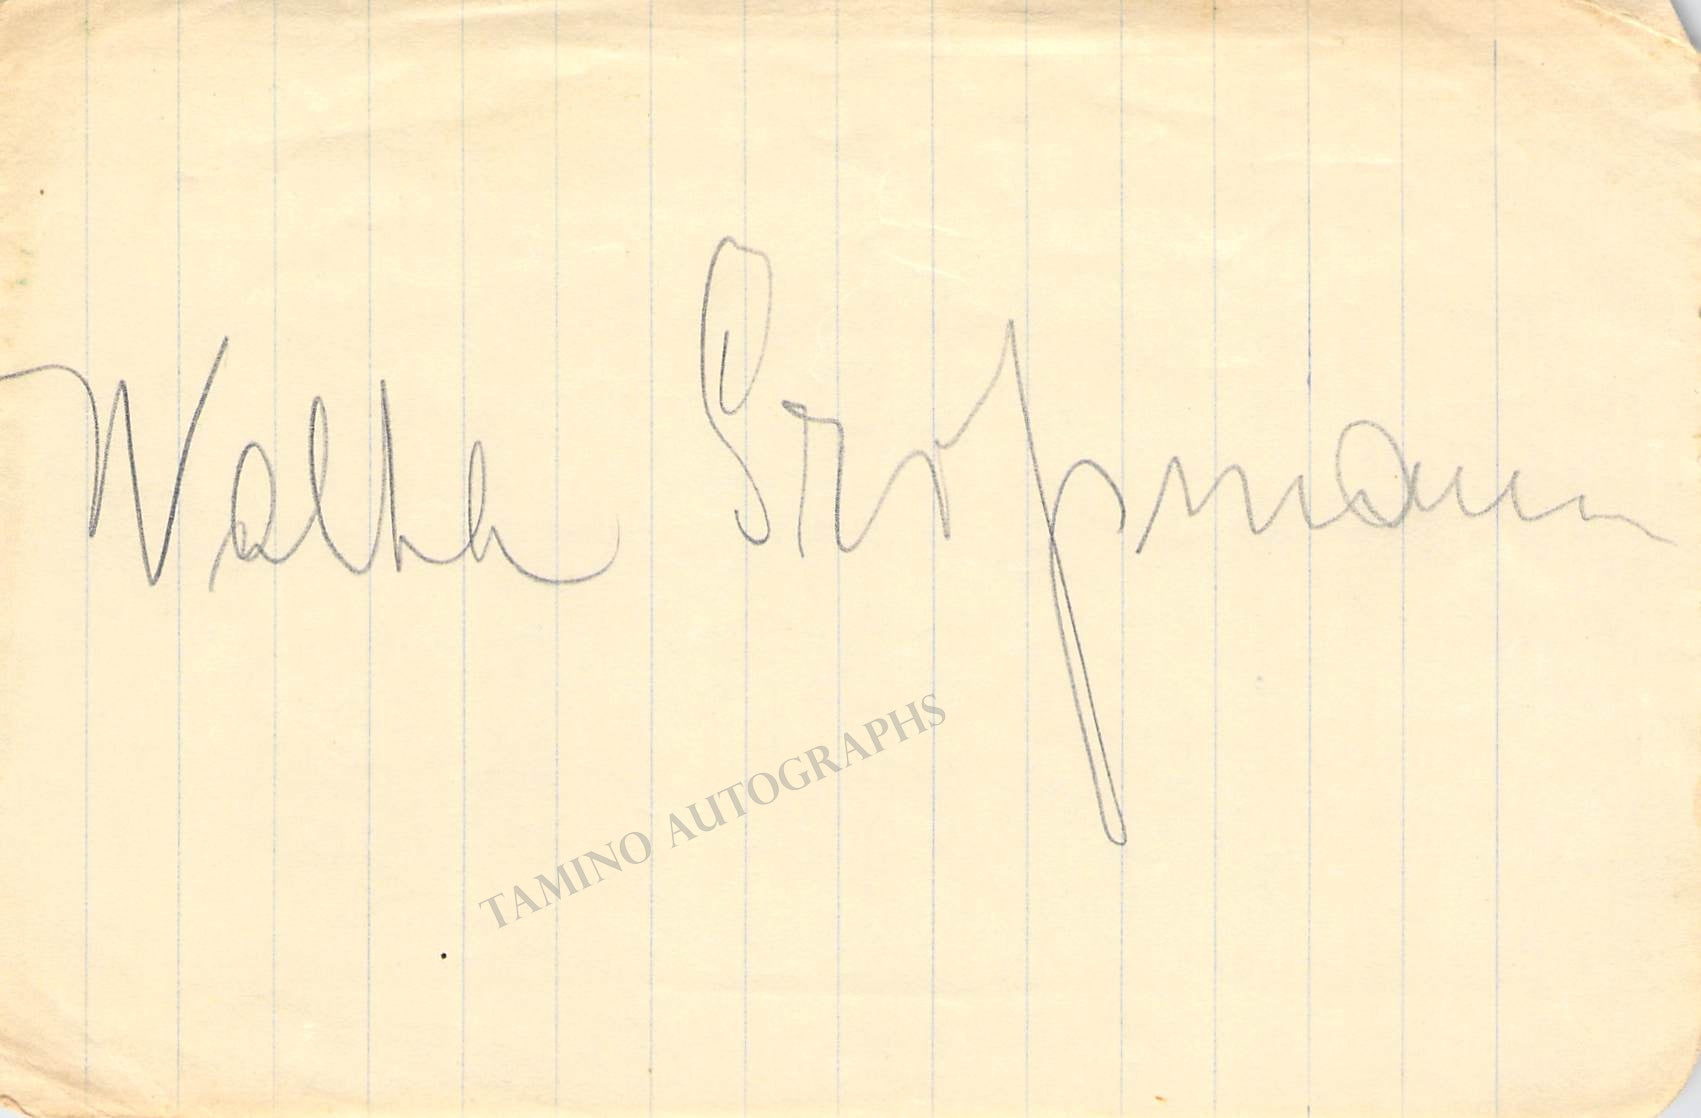 Walter Großmann
TAMINO AUTOGRAPHS